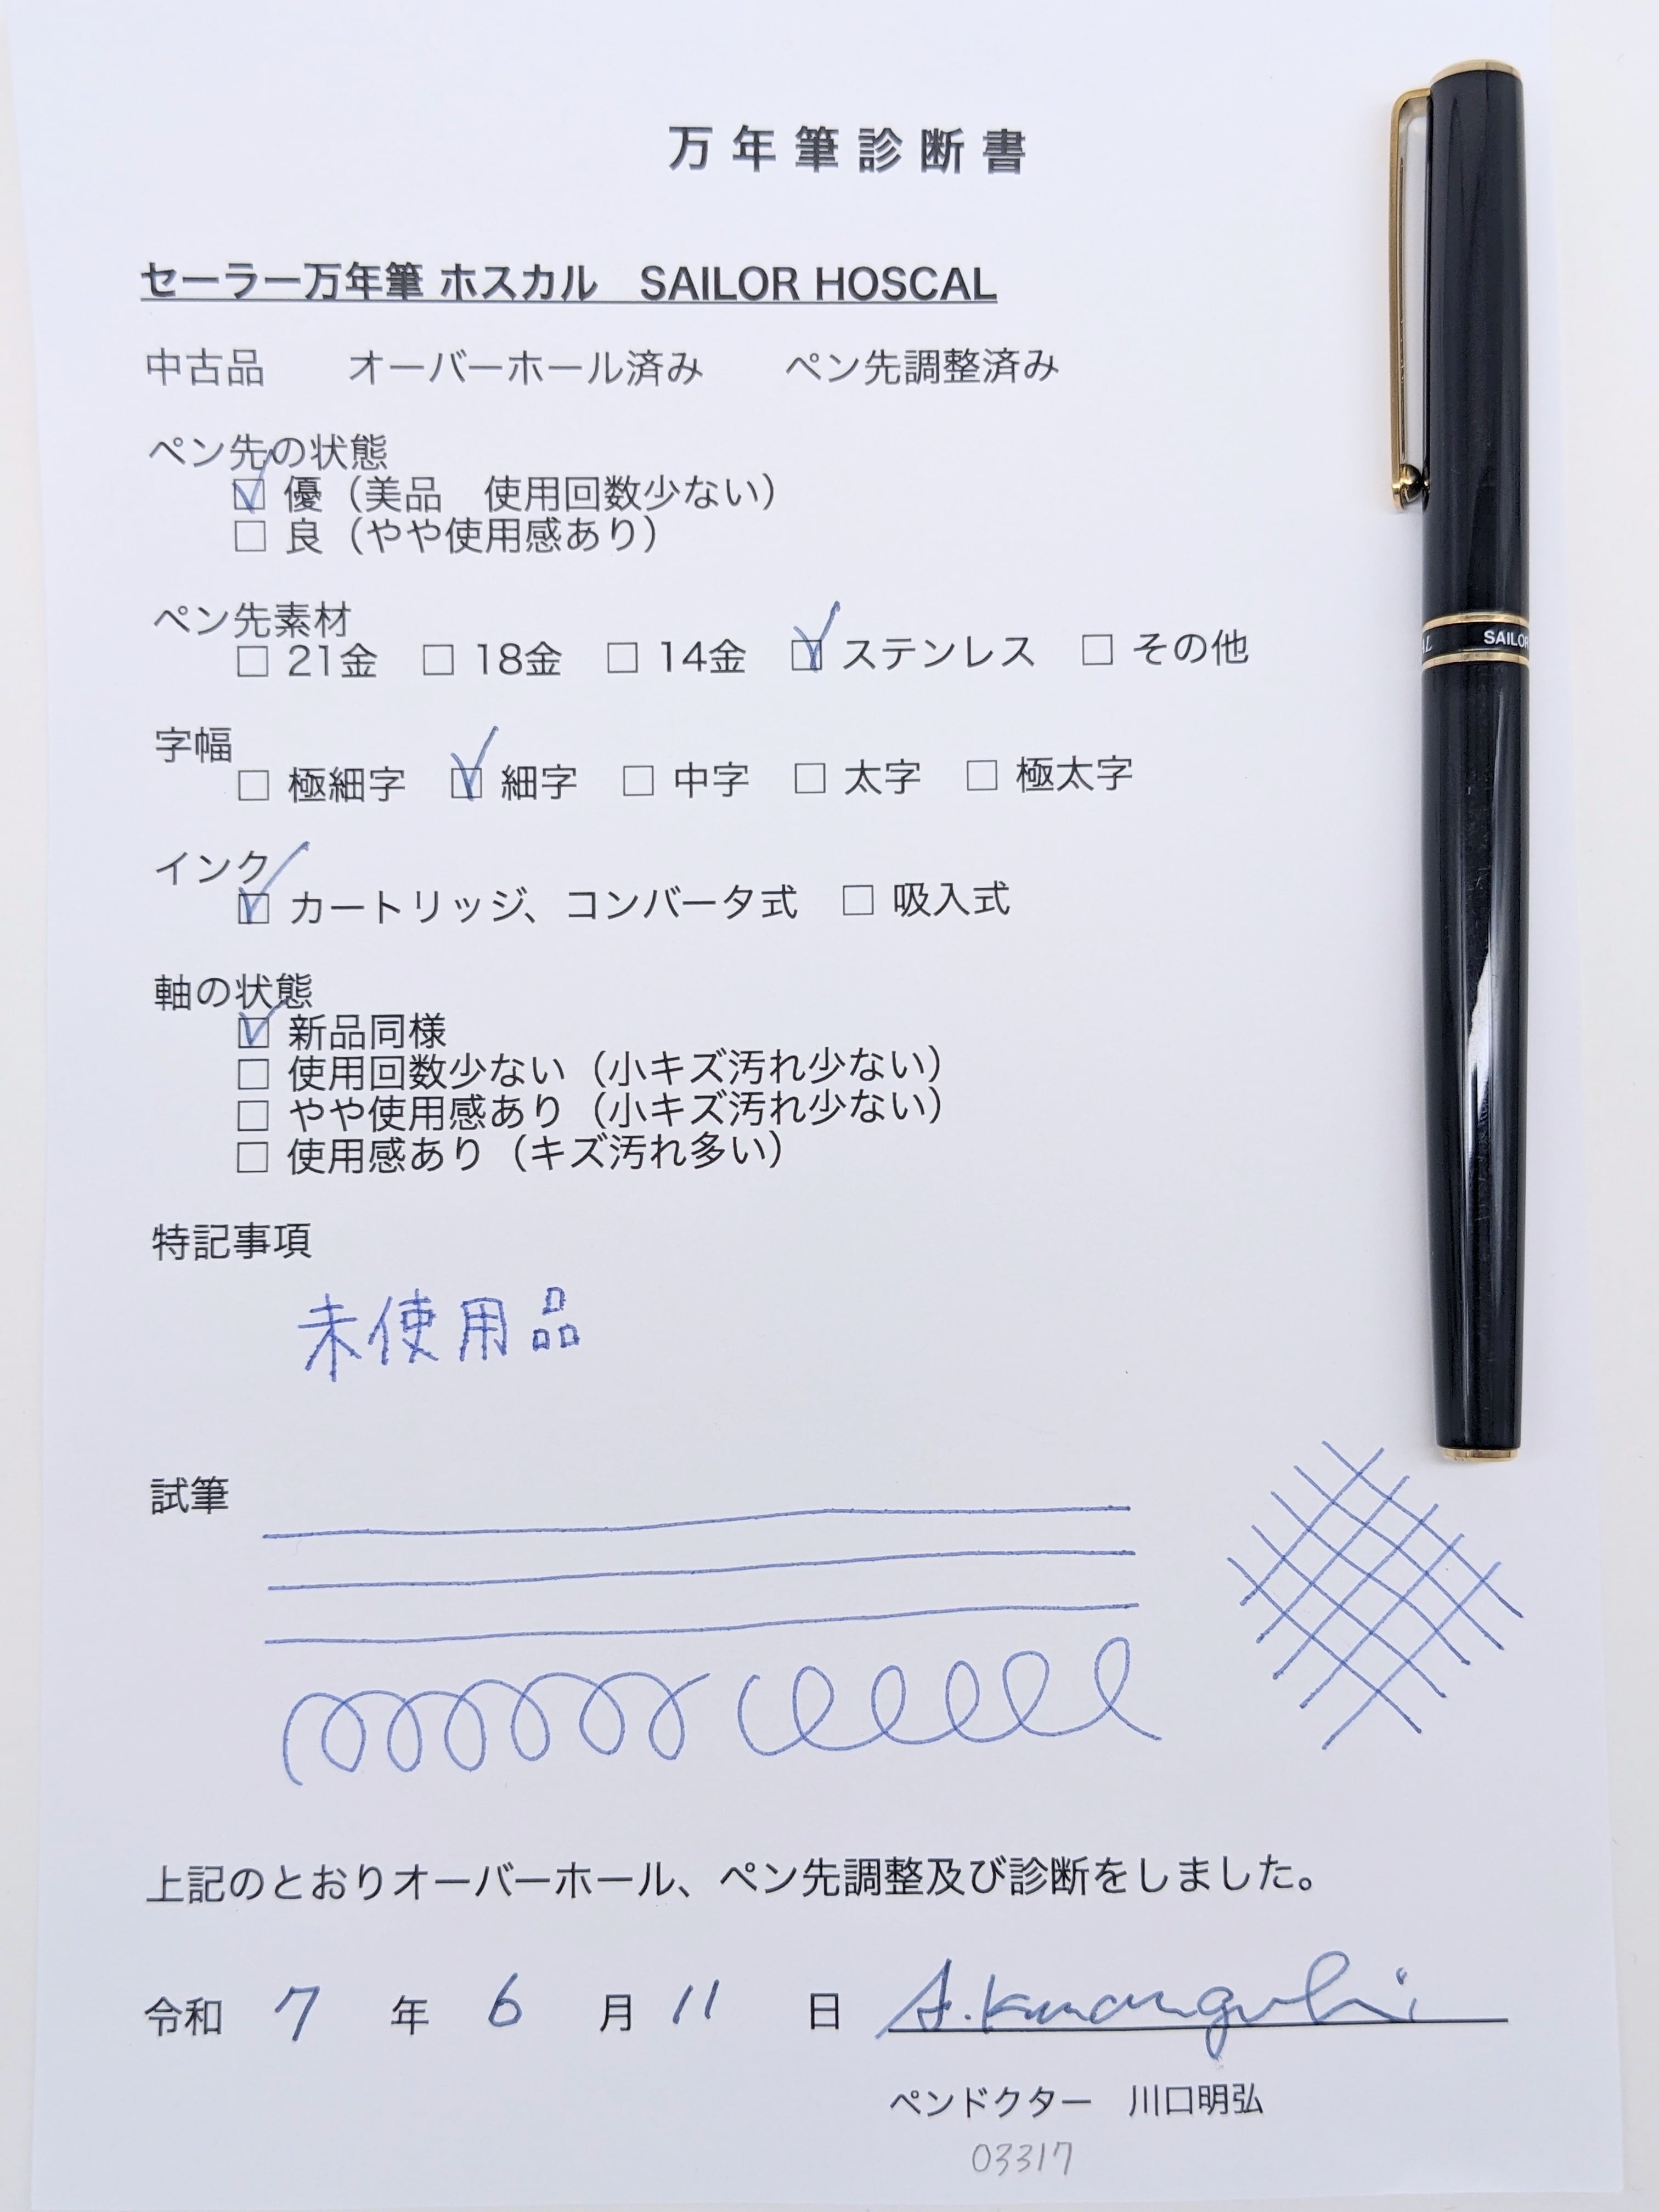 万年筆診断書
セーラー万年筆 ホスカル　SAILOR HOSCAL
中古品　　オーバーホール済み　　ペン先調整済み
ペン先の状態
☑ 優（美品　使用回数少ない）
□ 良（やや使用感あり）
ペン先素材
□ 21金　□ 18金　□ 14金　☑ ステンレス　□ その他
字幅
□ 極細字　☑ 細字　□ 中字　□ 太字　□ 極太字
インク
☑ カートリッジ、コンバータ式　□ 吸入式
軸の状態
☑ 新品同様
□ 使用回数少ない（小キズ汚れ少ない）
□ やや使用感あり（小キズ汚れ少ない）
□ 使用感あり（キズ汚れ多い）
特記事項
未使用品
試筆
上記のとおりオーバーホール、ペン先調整及び診断をしました。
令和 7 年 6 月 11 日 A.Kawaguchi
ペンドクター　川口明弘
03317
SAILOR